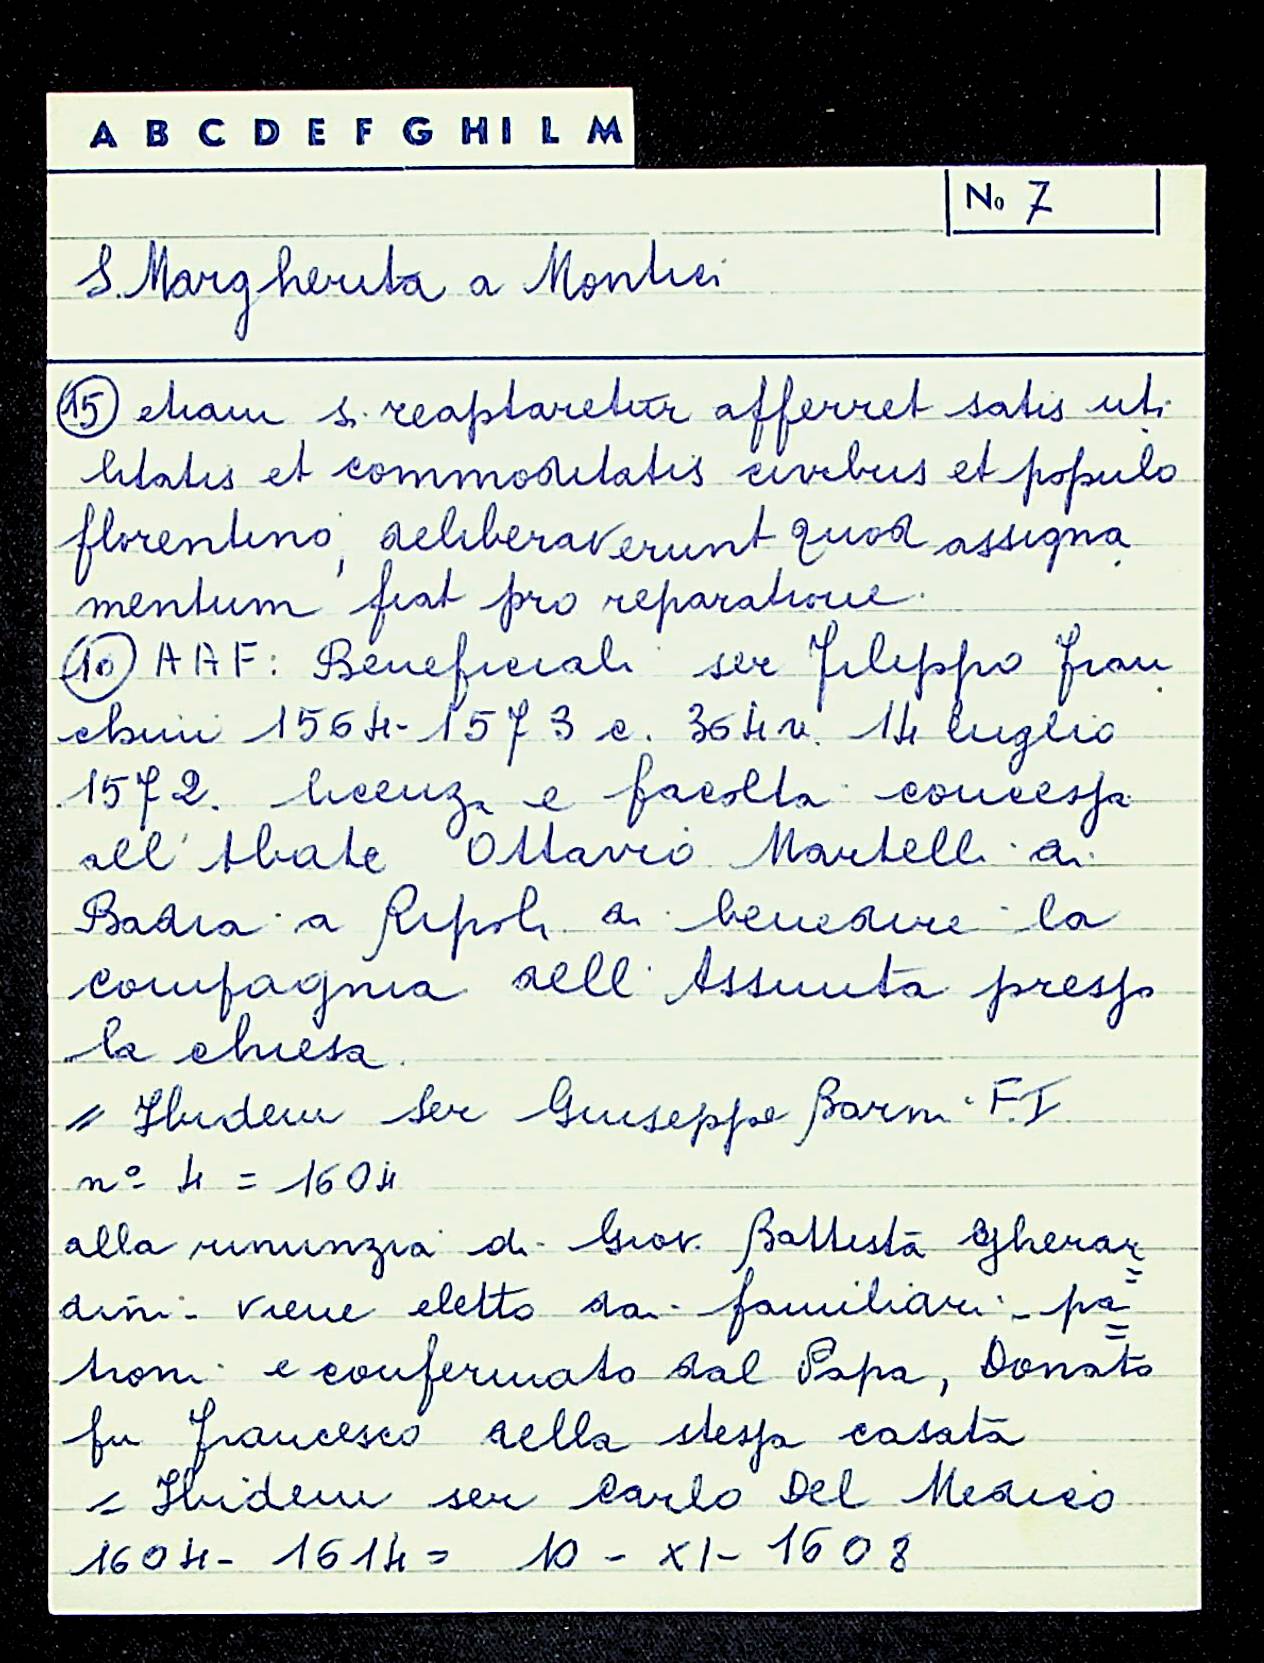 A B C D E F G H I L M
No 7
S. Margherita a Montici
(15) etiam si reaptaretur afferret satis uti
litatis et commoditatis civibus et populo
florentino, deliberaverunt quod assigna
mentum fiat pro reparatione.
(10) A A F: Beneficiali ser Filippo Fran
chini 1564-1573 c. 364 v. 14 luglio
1572. licenza e facolta concessa
all'Abate Ottavio Martelli di
Badia a Ripoli di benedire la
compagnia dell'Assunta presso
la chiesa.
" Ibidem Ser Giuseppe Barni F.I.
nº 4 = 1604
alla rinunzia di Giov. Battista Gherar
=
dini - viene eletto dai familiari - pa
=
troni e confermato dal Papa, Donato
fu Francesco della stessa casata
= Ibidem ser Carlo Del Medico
1604 - 1614 = 10 - XI - 1608